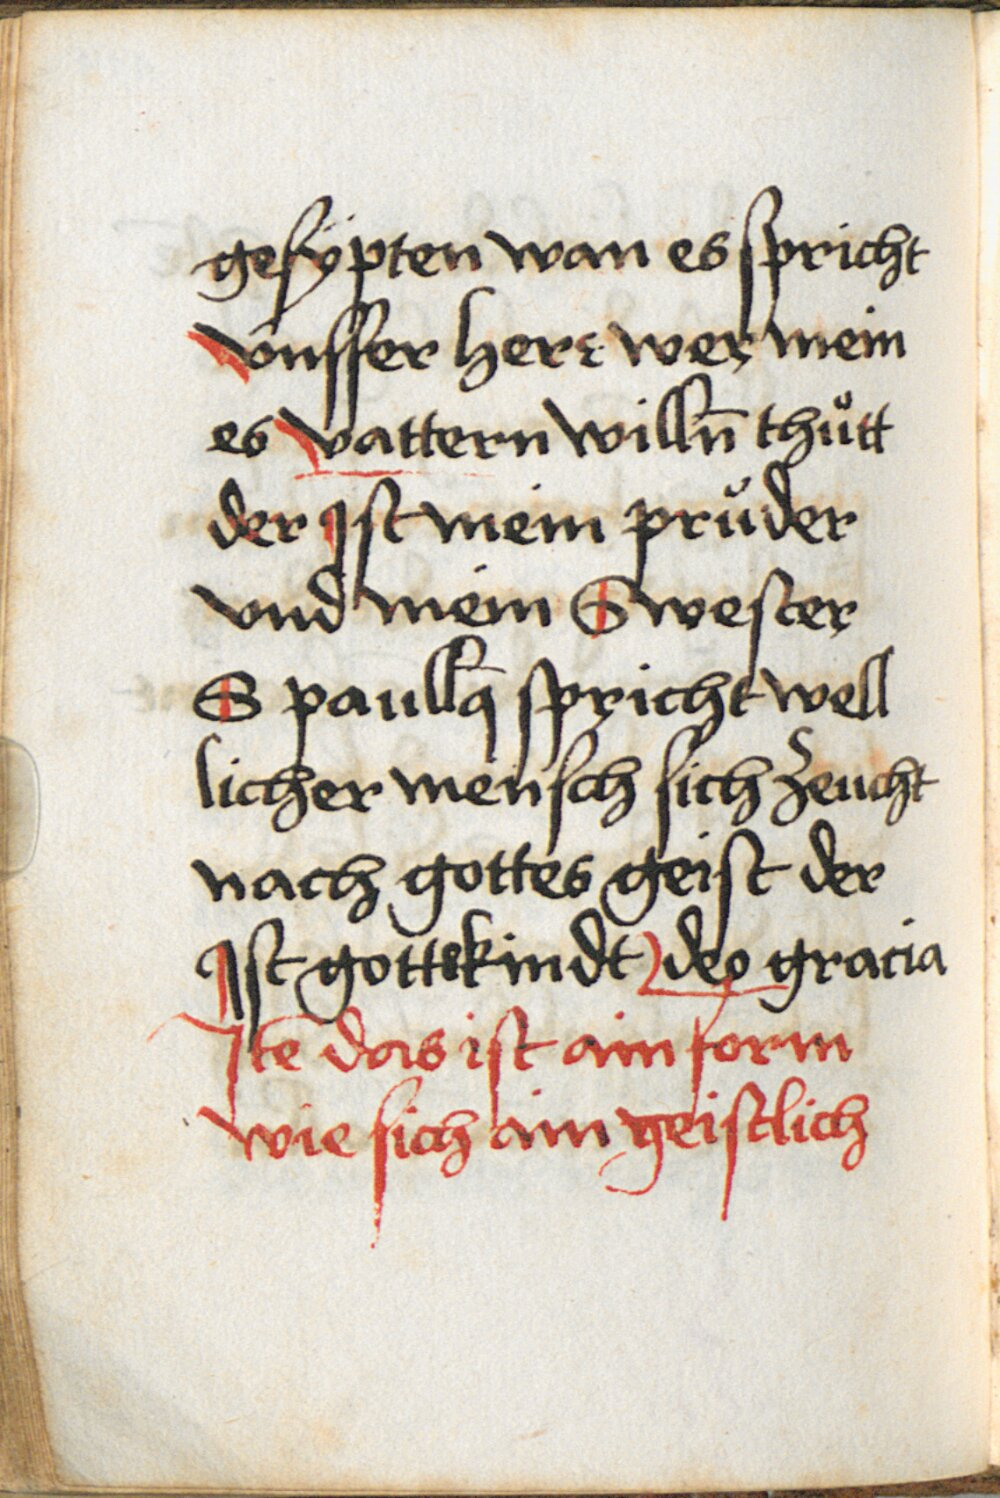 gesÿpten wan es spricht
vnsser herr wer mein
es vattern willn̄ thůtt
der Jst mein průder
vnd mein Swester
S paullꝯ spricht well
licher mensch sich zeucht
nach gottes geist der
Jst gottskindt deo gracia
Jtē das ist ain form
wie sich ain geistlich